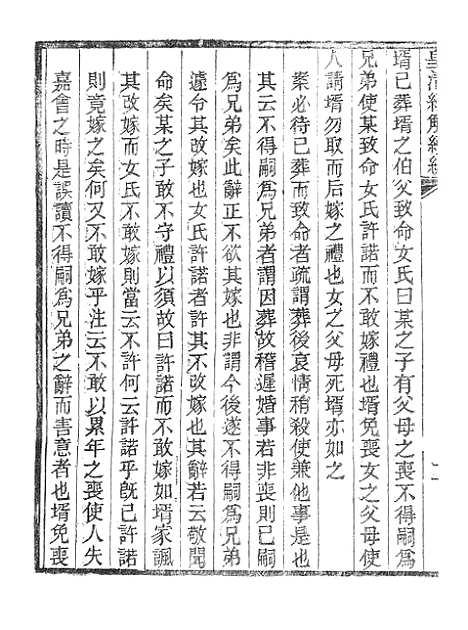 皇清經解續編
壻已葬壻之伯父致命女氏曰某之子有父母之喪不得嗣爲
兄弟使某致命女氏許諾而不敢嫁禮也壻免喪女之父母使
人請壻勿取而后嫁之禮也女之父母死壻亦如之
案必待已葬而致命者疏謂葬後哀情稍殺使兼他事是也
其云不得嗣爲兄弟者謂因葬故稽遲婚事若非喪則已嗣
爲兄弟矣此辭正不欲其嫁也非謂今後遂不得嗣爲兄弟
遽令其改嫁也女氏許諾者許其不改嫁也其辭若云敬聞
命矣某之子敢不守禮以須故曰許諾而不敢嫁如壻家諷
其改嫁而女氏不敢嫁則當云不許何云許諾乎旣已許諾
則竟嫁之矣何又不敢嫁乎注云不敢以累年之喪使人失
嘉會之時是誤讀不得嗣爲兄弟之辭而害意者也壻免喪